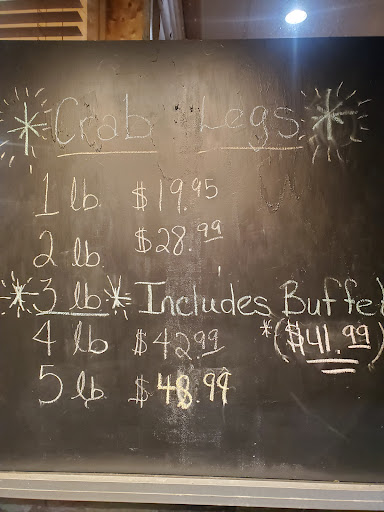 *Crab Legs*
1 lb $19.95
2 lb $28.99
*3 lb* Includes Buffet
*($41.99)
4 lb $42.99
5 lb $48.99